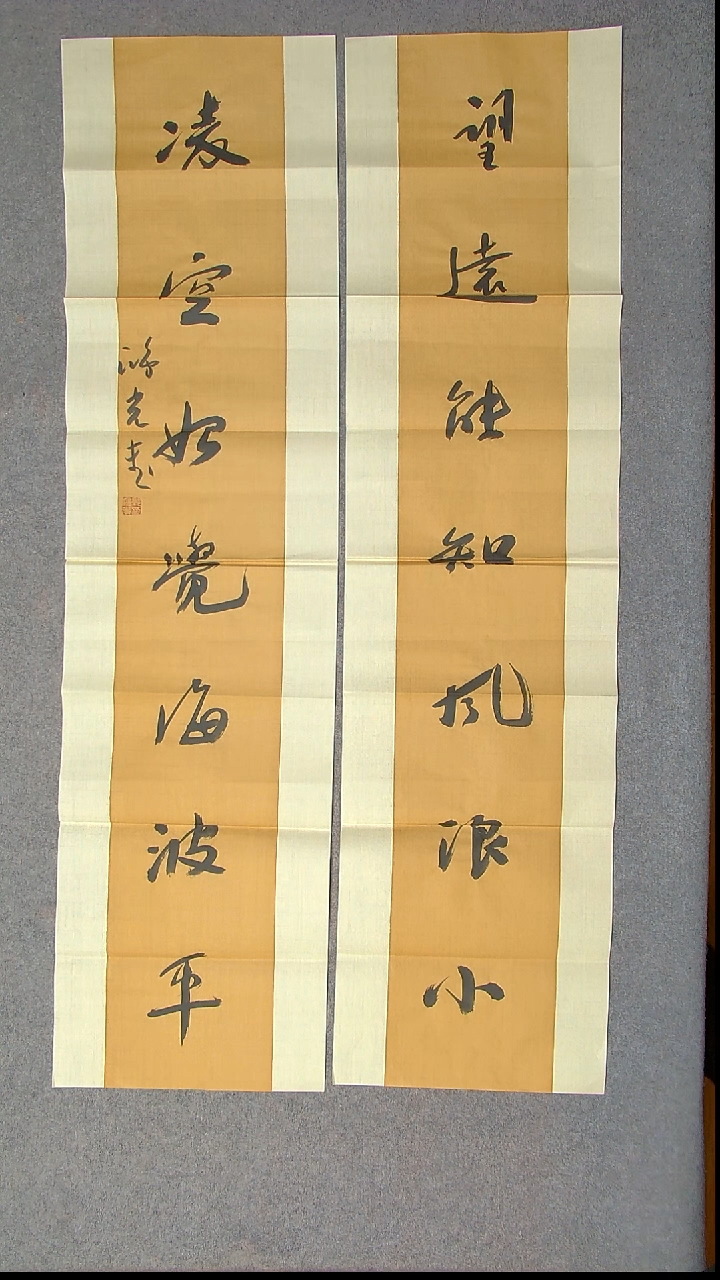 望遠能知風浪小
凌空始覺海波平
鴻光書